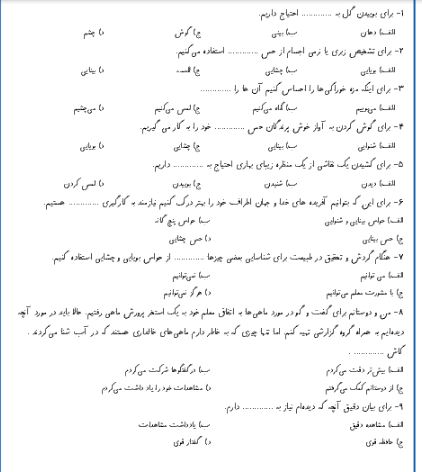 ۱- برای بوییدن گل به ............ احتیاج داریم.
الف) دهان ب) بینی ج) گوش د) چشم
۲- برای تشخیص زبری یا نرمی اجسام از حس ............ استفاده می‌کنیم.
الف) بویایی ب) چشایی ج) لامسه د) بینایی
۳- برای اینکه مزه خوراکی‌ها را احساس کنیم آن ها را ............
الف) می‌بوییم ب) نگاه می‌کنیم ج) لمس می‌کنیم د) می‌چشیم
۴- برای گوش کردن به آواز خوش پرندگان حس ............ خود را به کار می گیریم.
الف) شنوایی ب) بینایی ج) چشایی د) بویایی
۵- برای کشیدن یک نقاشی از یک منظره زیبای بهاری احتیاج به ............ داریم.
الف) دیدن ب) شنیدن ج) بوییدن د) لمس کردن
۶- برای این که بتوانیم آفریده های خدا و جهان اطراف خود را بهتر درک کنیم نیازمند به کارگیری ............ هستیم.
الف) حواس بینایی و شنوایی ب) حواس پنج گانه
ج) حس بینایی د) حس چشایی
۷- هنگام گردش و تحقیق در طبیعت برای شناسایی بعضی چیزها ............ از حواس بویایی و چشایی استفاده کنیم.
الف) می توانیم ب) نمی‌توانیم
ج) با مشورت معلم می‌توانیم د) هرگز نمی‌توانیم
۸- من و دوستانم برای گفت و گو در مورد ماهی‌ها به اتفاق معلم خود به یک استخر پرورش ماهی رفتیم. حالا باید در مورد آنچه
دیده‌ایم به همراه گروه گزارشی تهیه کنم. اما تنها چیزی که به خاطر دارم ماهی‌های خالداری هستند که در آب شنا می‌کردند .
کاش ............ .
الف) بیش‌تر دقت می‌کردم ب) در گفتگوها شرکت می‌کردم
ج) از دوستانم کمک می‌گرفتم د) مشاهدات خود را یاد داشت می‌کردم
۹- برای بیان دقیق آنچه که دیده‌ام نیاز به ............ دارم.
الف) مشاهده دقیق ب) یادداشت مشاهدات
ج) حافظه قوی د) گفتار قوی